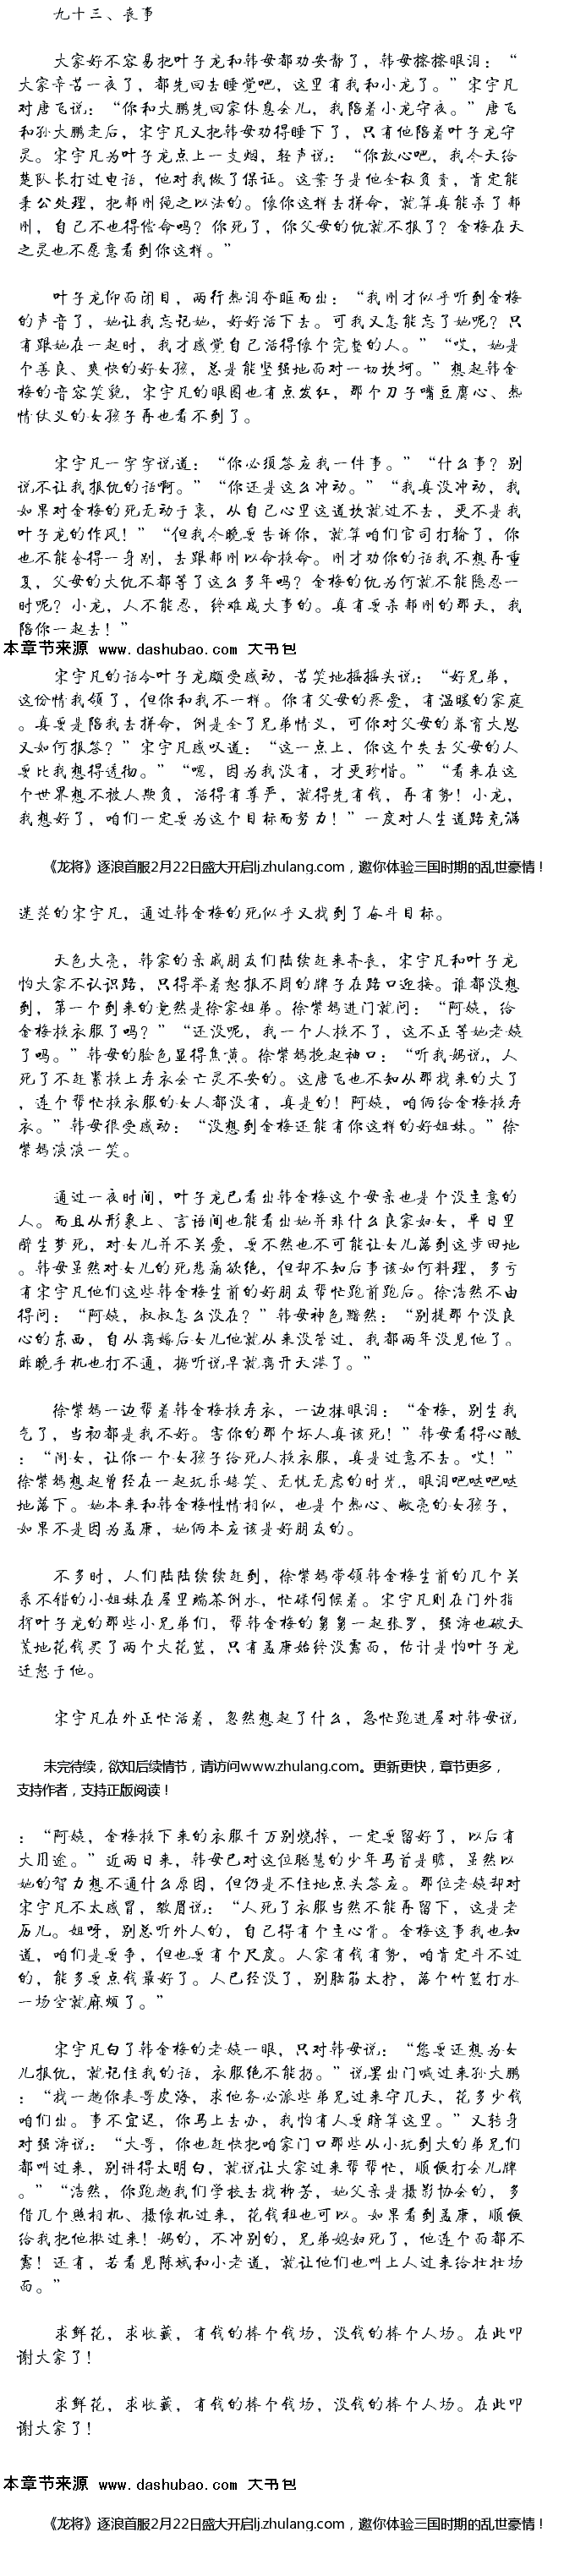 九十三、丧事
大家好不容易把叶子龙和韩母都劝安静了，韩母擦擦眼泪：“
大家辛苦一夜了，都先回去睡觉吧，这里有我和小龙了。”宋宇凡
对唐飞说：“你和大鹏先回家休息会儿，我陪着小龙守夜。”唐飞
和孙大鹏走后，宋宇凡又把韩母劝得睡下了，只有他陪着叶子龙守
灵。宋宇凡为叶子龙点上一支烟，轻声说：“你放心吧，我今天给
楚队长打过电话，他对我做了保证。这案子是他全权负责，肯定能
秉公处理，把郝刚绳之以法的。像你这样去拼命，就算真能杀了郝
刚，自己不也得偿命吗？你死了，你父母的仇就不报了？金梅在天
之灵也不愿意看到你这样。”
叶子龙仰面闭目，两行热泪夺眶而出：“我刚才似乎听到金梅
的声音了，她让我忘记她，好好活下去。可我又怎能忘了她呢？只
有跟她在一起时，我才感觉自己活得像个完整的人。”“哎，她是
个善良、爽快的好女孩，总是能坚强地面对一切坎坷。”想起韩金
梅的音容笑貌，宋宇凡的眼圈也有点发红，那个刀子嘴豆腐心、热
情仗义的女孩子再也看不到了。
宋宇凡一字字说道：“你必须答应我一件事。”“什么事？别
说不让我报仇的话啊。”“你还是这么冲动。”“我真没冲动，我
如果对金梅的死无动于衷，从自己心里这道坎就过不去，更不是我
叶子龙的作风！”“但我今晚要告诉你，就算咱们官司打输了，你
也不能舍得一身剐，去跟郝刚以命换命。刚才劝你的话我不想再重
复，父母的大仇不都等了这么多年吗？金梅的仇为何就不能隐忍一
时呢？小龙，人不能忍，终难成大事的。真有要杀郝刚的那天，我
陪你一起去！”
本章节来源 www.dashubao.com 大书包
宋宇凡的话令叶子龙颇受感动，苦笑地摇摇头说：“好兄弟，
这份情我领了，但你和我不一样。你有父母的疼爱，有温暖的家庭
。真要是陪我去拼命，倒是全了兄弟情义，可你对父母的养育大恩
又如何报答？”宋宇凡感叹道：“这一点上，你这个失去父母的人
要比我想得透彻。”“嗯，因为我没有，才更珍惜。”“看来在这
个世界想不被人欺负，活得有尊严，就得先有钱，再有势！小龙，
我想好了，咱们一定要为这个目标而努力！”一度对人生道路充满
《龙将》逐浪首服2月22日盛大开启lj.zhulang.com，邀你体验三国时期的乱世豪情！
迷茫的宋宇凡，通过韩金梅的死似乎又找到了奋斗目标。
天色大亮，韩家的亲戚朋友们陆续赶来奔丧，宋宇凡和叶子龙
怕大家不认识路，只得举着恕报不周的牌子在路口迎接。谁都没想
到，第一个到来的竟然是徐家姐弟。徐紫嫣进门就问：“阿姨，给
金梅换衣服了吗？”“还没呢，我一个人换不了，这不正等她老姨
了吗。”韩母的脸色显得焦黄。徐紫嫣挽起袖口：“听我妈说，人
死了不赶紧换上寿衣会亡灵不安的。这唐飞也不知从那找来的大了
，连个帮忙换衣服的女人都没有，真是的！阿姨，咱俩给金梅换寿
衣。”韩母很受感动：“没想到金梅还能有你这样的好姐妹。”徐
紫嫣淡淡一笑。
通过一夜时间，叶子龙已看出韩金梅这个母亲也是个没主意的
人。而且从形象上、言语间也能看出她并非什么良家妇女，平日里
醉生梦死，对女儿并不关爱，要不然也不可能让女儿落到这步田地
。韩母虽然对女儿的死悲痛欲绝，但却不知后事该如何料理，多亏
有宋宇凡他们这些韩金梅生前的好朋友帮忙跑前跑后。徐浩然不由
得问：“阿姨，叔叔怎么没在？”韩母神色黯然：“别提那个没良
心的东西，自从离婚后女儿他就从来没管过，我都两年没见他了。
昨晚手机也打不通，据听说早就离开天港了。”
徐紫嫣一边帮着韩金梅换寿衣，一边抹眼泪：“金梅，别生我
气了，当初都是我不好。害你的那个坏人真该死！”韩母看得心酸
：“闺女，让你一个女孩子给死人换衣服，真是过意不去。哎！”
徐紫嫣想起曾经在一起玩乐嬉笑、无忧无虑的时光，眼泪吧哒吧哒
地落下。她本来和韩金梅性情相似，也是个热心、敞亮的女孩子，
如果不是因为孟康，她俩本应该是好朋友的。
不多时，人们陆陆续续赶到，徐紫嫣带领韩金梅生前的几个关
系不错的小姐妹在屋里端茶倒水，忙碌伺候着。宋宇凡则在门外指
挥叶子龙的那些小兄弟们，帮韩金梅的舅舅一起张罗，强涛也破天
荒地花钱买了两个大花篮，只有孟康始终没露面，估计是怕叶子龙
迁怒于他。
宋宇凡在外正忙活着，忽然想起了什么，急忙跑进屋对韩母说
未完待续，欲知后续情节，请访问www.zhulang.com。更新更快，章节更多，
支持作者，支持正版阅读！
：“阿姨，金梅换下来的衣服千万别烧掉，一定要留好了，以后有
大用途。”近两日来，韩母已对这位聪慧的少年马首是瞻，虽然以
她的智力想不通什么原因，但仍是不住地点头答应。那位老姨却对
宋宇凡不太感冒，皱眉说：“人死了衣服当然不能再留下，这是老
历儿。姐呀，别总听外人的，自己得有个主心骨。金梅这事我也知
道，咱们是要争，但也要有个尺度。人家有钱有势，咱肯定斗不过
的，能多要点钱最好了。人已经没了，别脑筋太拧，落个竹篮打水
一场空就麻烦了。”
宋宇凡白了韩金梅的老姨一眼，只对韩母说：“您要还想为女
儿报仇，就记住我的话，衣服绝不能扔。”说罢出门喊过来孙大鹏
：“找一趟你表哥皮海，求他务必派些弟兄过来守几天，花多少钱
咱们出。事不宜迟，你马上去办，我怕有人要暗算这里。”又转身
对强涛说：“大哥，你也赶快把咱家门口那些从小玩到大的弟兄们
都叫过来，别讲得太明白，就说让大家过来帮帮忙，顺便打会儿牌
。”“浩然，你跑趟我们学校去找柳芳，她父亲是摄影协会的，多
借几个照相机、摄像机过来，花钱租也可以。如果看到孟康，顺便
给我把他揪过来！妈的，不冲别的，兄弟媳妇死了，他连个面都不
露！还有，若看见陈斌和小老道，就让他们也叫上人过来给壮壮场
面。”
求鲜花，求收藏，有钱的捧个钱场，没钱的捧个人场。在此叩
谢大家了！
求鲜花，求收藏，有钱的捧个钱场，没钱的捧个人场。在此叩
谢大家了！
本章节来源 www.dashubao.com 大书包
《龙将》逐浪首服2月22日盛大开启lj.zhulang.com，邀你体验三国时期的乱世豪情！